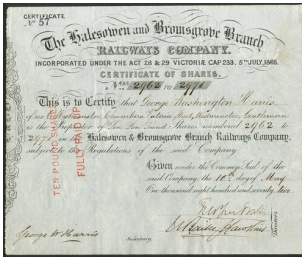 CERTIFICATE
No 57
The Halesowen and Bromsgrove Branch
RAILWAYS COMPANY.
INCORPORATED UNDER THE ACT 28 & 29 VICTORIÆ CAP 233, 5TH JULY, 1865.
CERTIFICATE OF SHARES.
2962 TO 2971
This is to Certify that George Washington Harris
of No Westminster Chambers Victoria Street, Westminster, Gentleman
is the Proprietor of Ten Ten Pound Shares numbered 2962 to
2971 Halesowen & Bromsgrove Branch Railways Company,
subject to the Regulations of the said Company.
Given under the Common Seal of the
said Company, the 10th day of May
One thousand eight hundred and seventy two
TEN POUND SHARES
FULLY PAID UP
George W Harris
Secretary.
Directors